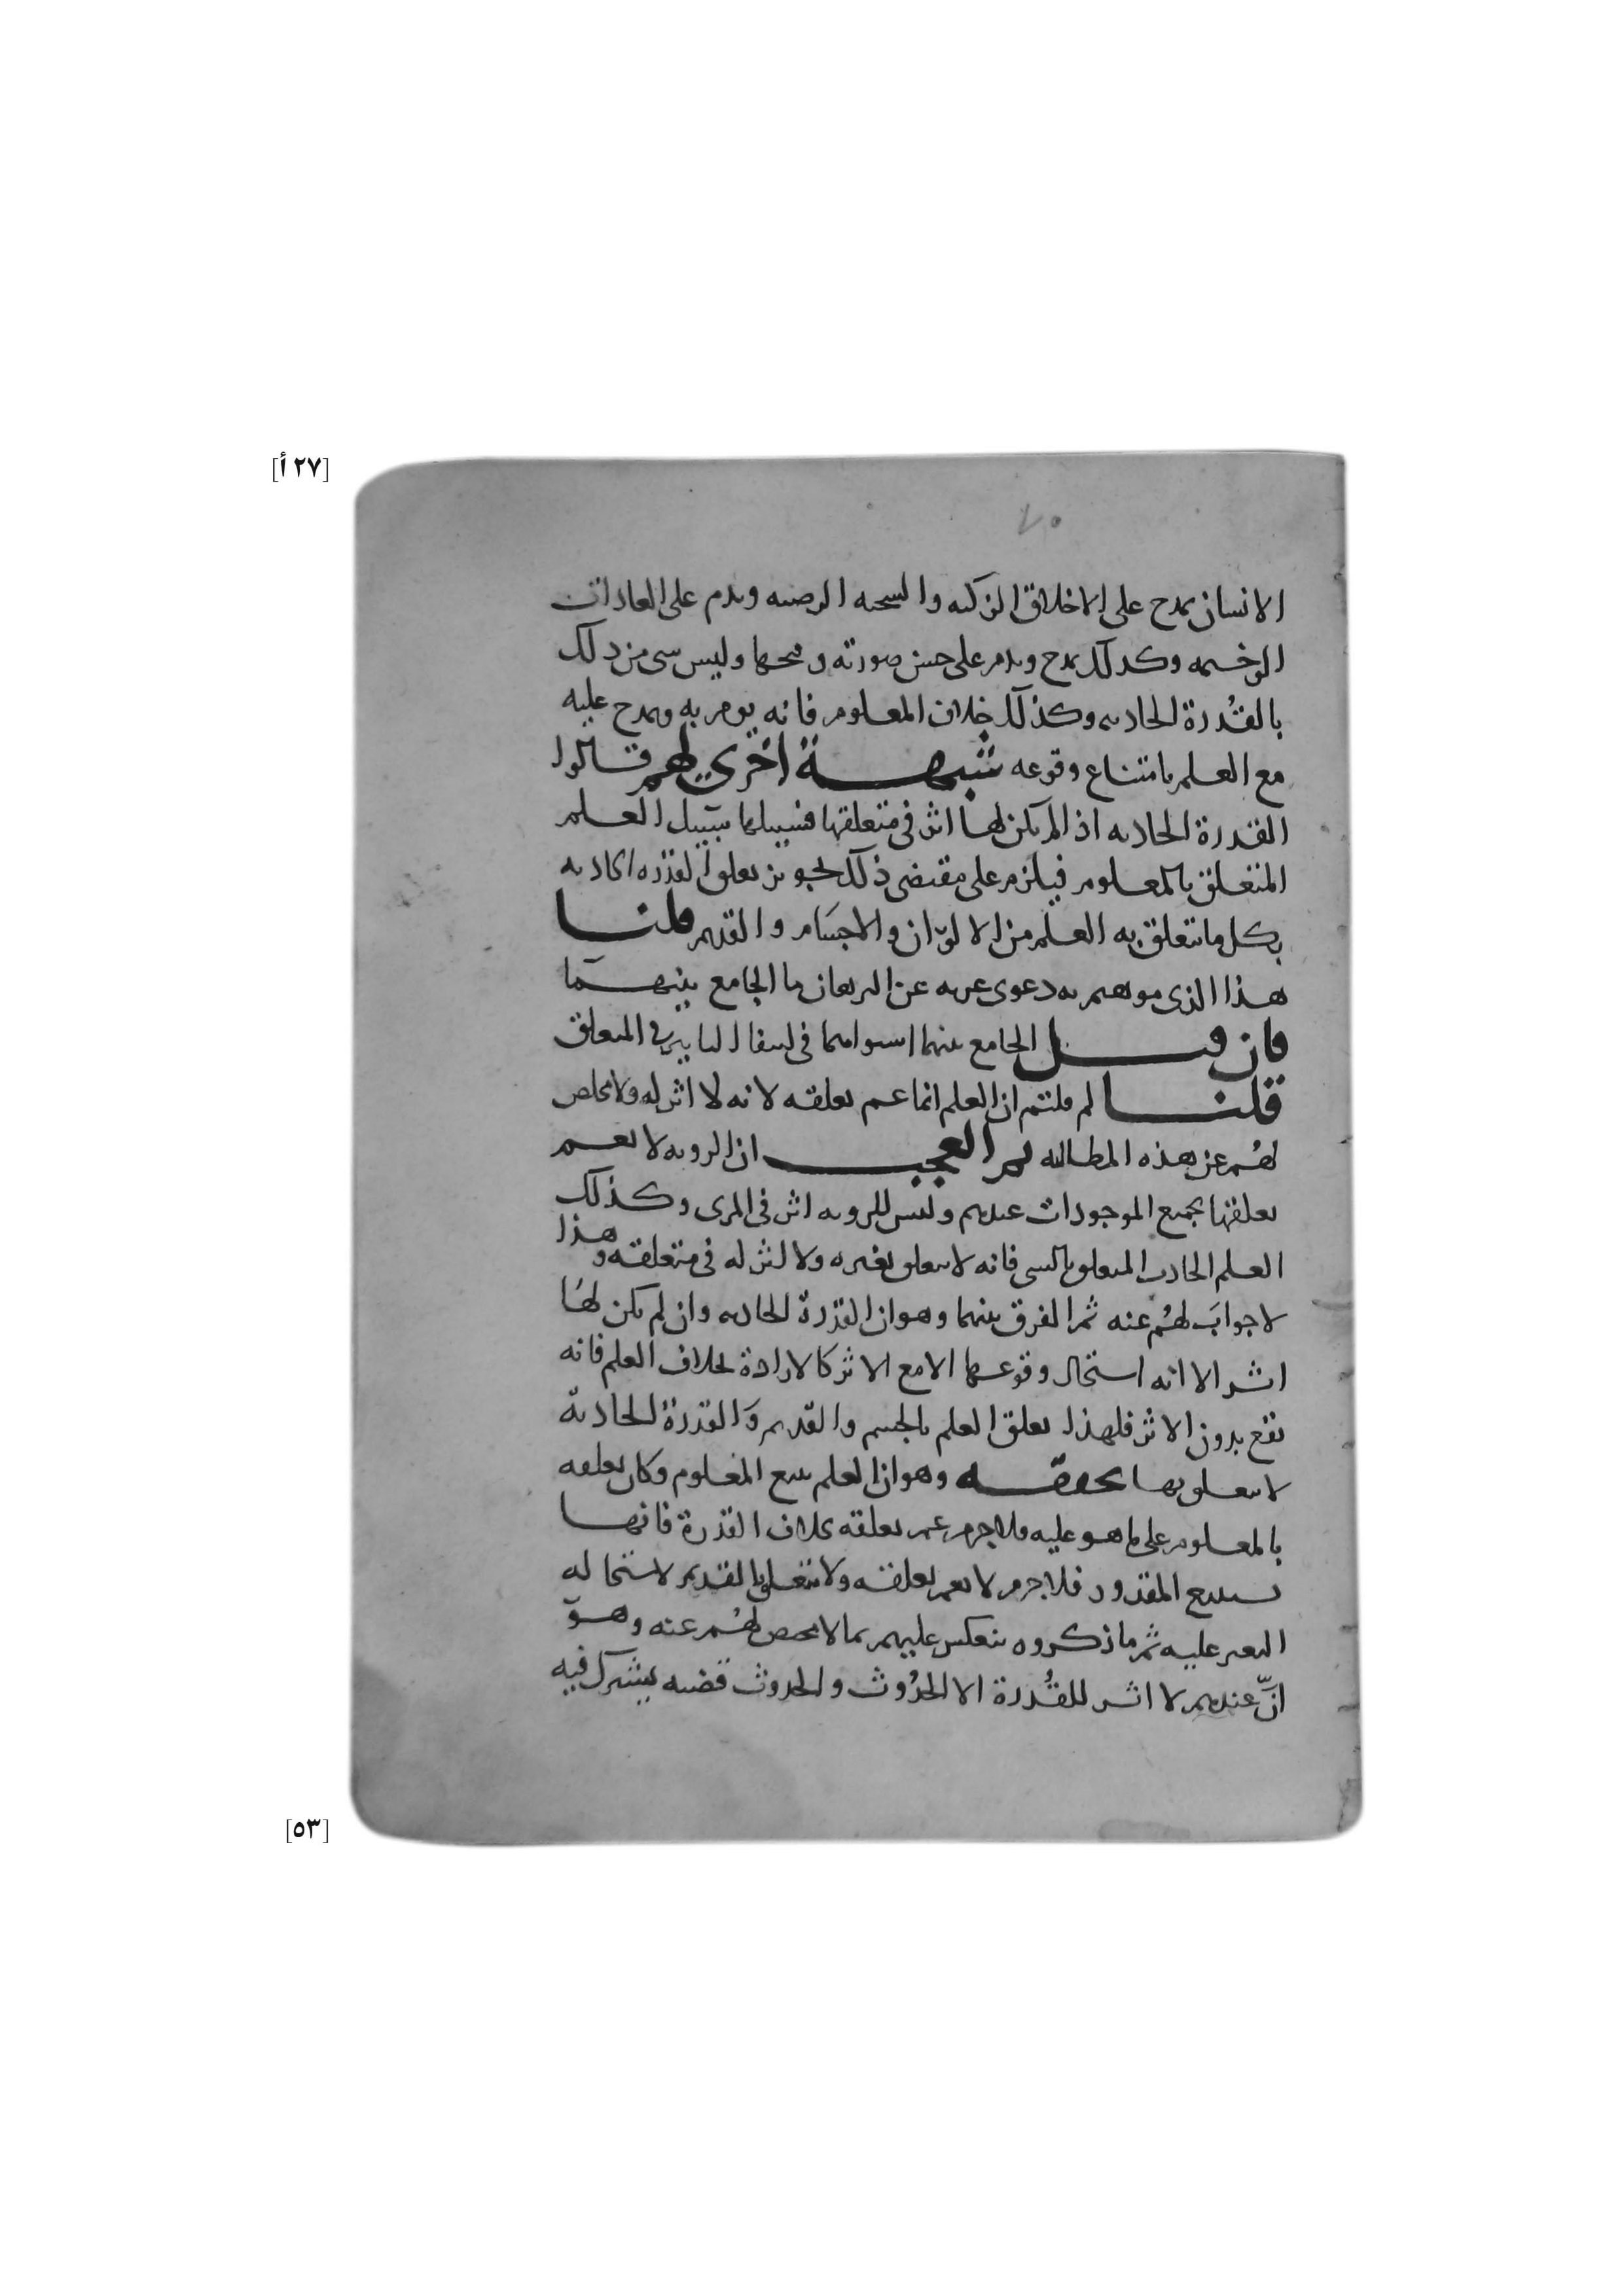 [٢٧ أ]
٧٠
الانسان يمدح على الاخلاق الزكيه والسجيه الرضيه ويذم على العادات
الوخيمه وكذلك يمدح ويذم على حسن صورته وقبحها وليس شي من ذلك
بالقُدرة الحادثه وكذلك خلاف المعلوم فانه يومر به ويمدح عليه
مع العلم بامتناع وقوعه شبهة اخرى لهم قالوا
القدرة الحادثه اذا لم يكن لها اثر في متعلقها فسبيلها سبيل العلم
المتعلق بالمعلوم فيلزم على مقتضى ذلك تجويز تعلق القدره الحادثه
بكل ما يتعلق به العلم من الالوان والاجسام والقديم قلنا
هذا الذي موهتم به دعوى عريه عن البرهان ما الجامع بينهما
فان قيل الجامع بينهما استواهما في انتفا التاثير في المتعلق
قلنا لم قلتم ان العلم انما عم تعلقه لانه لا اثر له ولا مخلص
لهُم عن هذه المطالبه ثم العجب ان الرويه لا يعم
تعلقها بجميع الموجودات عندهم وليس للرويه اثر في المرى وكذلك
العلم الحادث المتعلق بالشي فانه لا يتعلق بغيره ولا اثر له في متعلقه وهذا
لا جوابَ لهُم عنه ثم الفرق بينهما وهو ان القدرة الحادثه وان لم يكن لها
اثر الا انه استحال وقوعها الا مع الاثر كالارادة بخلاف العلم فانه
يقع بدون الاثر فلهذا تعلق العلم بالجسم والقديم وَالقدرة الحادثة
لا يتعلق بها يحققه وهو ان العلم يتبع المعلوم وكان تعلقه
بالمعلوم على ما هو عليه فلا جرم عم تعلقه بخلاف القدرة فانها
تستتبع المقدور فلا جرم لا يعم تعلقه ولا يتعلق بالقديم لاستحاله
التغير عليه ثم ما ذكروه ينعكس عليهم بما لا محيص لهُم عنه وهو
انّ عندهم لا اثر للقُدرة الا الحدُوث والحدوث قضيه يشترك فيه
[٥٣]